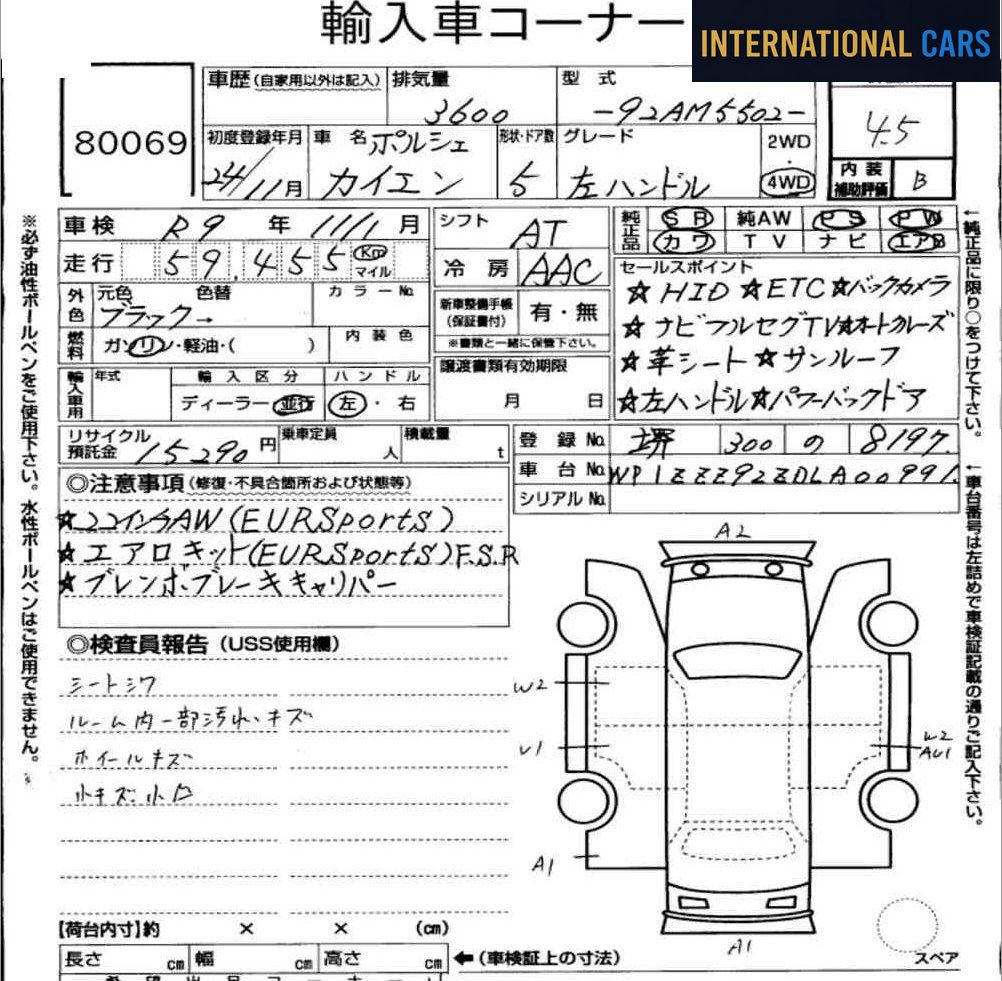 輸入車コーナー
INTERNATIONAL CARS
80069
車歴(自家用以外は記入) 排気量 型式
3600 -92AM5502-
4.5
初度登録年月 車名 ポルシェ 形状・ドア数 グレード 2WD・4WD
24/11月 カイエン 5 左ハンドル
内装補助評価 B
車検 R9年 11/1月
走行 59,455 Km マイル
外色 元色 色替 カラーNo.
ブラック→
燃料 ガソリン・軽油・( ) 内装色
輸入車用 年式 輸入区分 ハンドル
ディーラー・並行 左・右
リサイクル預託金 15290円 乗車定員 人 積載量 t
シフト AT
冷房 AAC
新車整備手帳(保証書付) 有・無
※書類と一緒に保管下さい。
譲渡書類有効期限
月 日
純正品 SR 純AW PS PW
カワ TV ナビ エアB
セールスポイント
☆HID ☆ETC ☆バックカメラ
☆ナビフルセグTV☆オートクルーズ
☆革シート☆サンルーフ
☆左ハンドル☆パワーバックドア
登録No. 堺 300 の 8197
車台No. WP1ZZZ92ZDLA00991
シリアルNo.
◎注意事項(修復・不具合箇所および状態等)
☆22インチAW(EURSports)
☆エアロキット(EURSports)F.S.R
☆ブレンボブレーキキャリパー
◎検査員報告(USS使用欄)
シートシワ
ルーム内一部汚れ・キズ
ホイールキズ
小キズ.小凹
A2
W2
U1
W2
AU1
A1
A1
スペア
【荷台内寸】約 × × (cm)
長さ cm 幅 cm 高さ cm ←(車検証上の寸法)
※必ず油性ボールペンをご使用下さい。水性ボールペンはご使用できません。
←純正品に限り○をつけて下さい。
←車台番号は左詰めで車検証記載の通りご記入下さい。